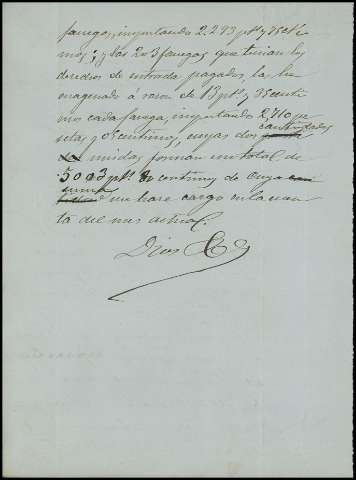 fanega, importando 2.293 ptˢ y 75 cénti
mos; y las 203 fanegas que tenian los
derechos de entrada pagados, las he
enagenado á razon de 13 ptˢ y 35 centi
mos cada fanega, importando 2,710 pe
setas y 05 centimos, cuyas dos cantidades
unidas forman un total de
5003 ptˢ 80 centimos de cuya
suma me hare cargo en la cuen
ta del mes actual.
Dios &ª